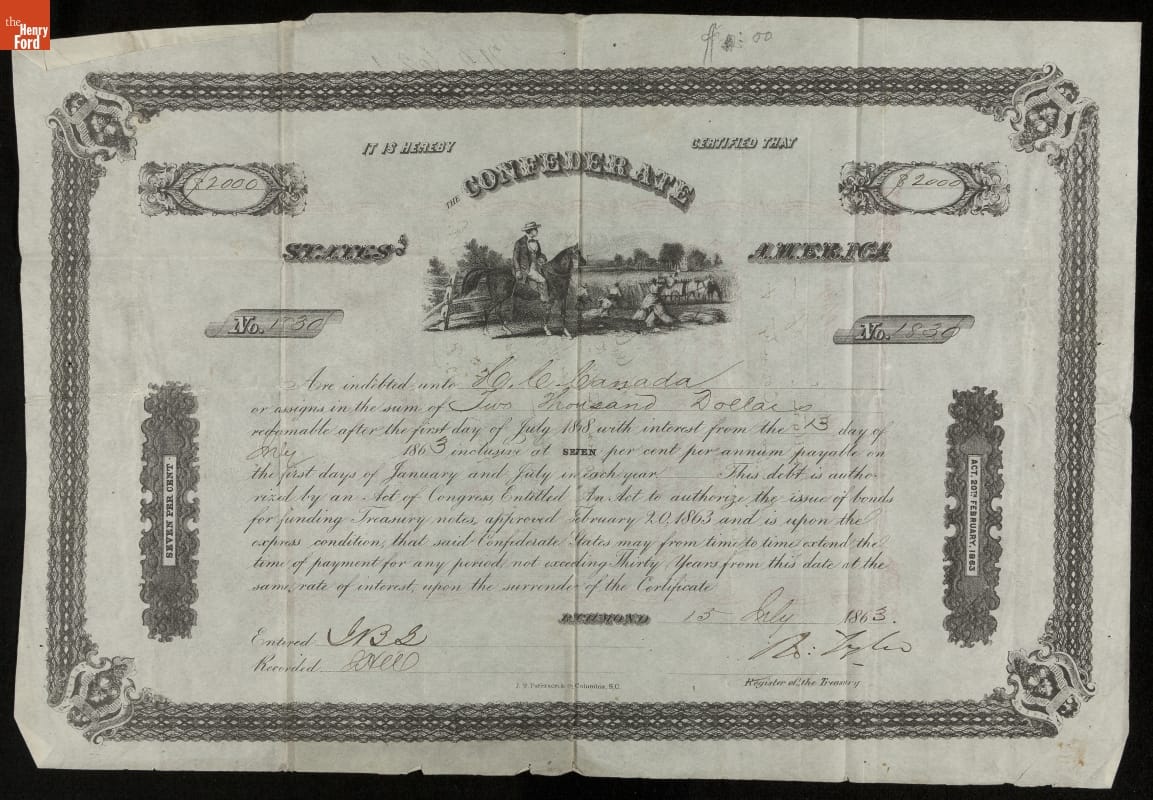 the
Henry
Ford
IT IS HEREBY CERTIFIED THAT
THE CONFEDERATE
$2000 $2000
STATES AMERICA
No. 1830 No. 1830
Are indebted unto H. C. Canada
or assigns in the sum of Two Thousand Dollars
redeemable after the first day of July 1868 with interest from the 13 day of
July 1863 inclusive at SEVEN per cent per annum payable on
the first days of January and July in each year. This debt is autho-
rized by an Act of Congress Entitled An Act to authorize the issue of bonds
for funding Treasury notes, approved February 20, 1863 and is upon the
express condition, that said Confederate States may from time to time extend the
time of payment for any period, not exceeding Thirty Years from this date at the
same rate of interest, upon the surrender of the Certificate
SEVEN PER CENT
ACT. 20TH FEBRUARY. 1863
RICHMOND 15 July 1863.
Entered
Recorded
R. Tyler
Register of the Treasury
Columbia, S.C.